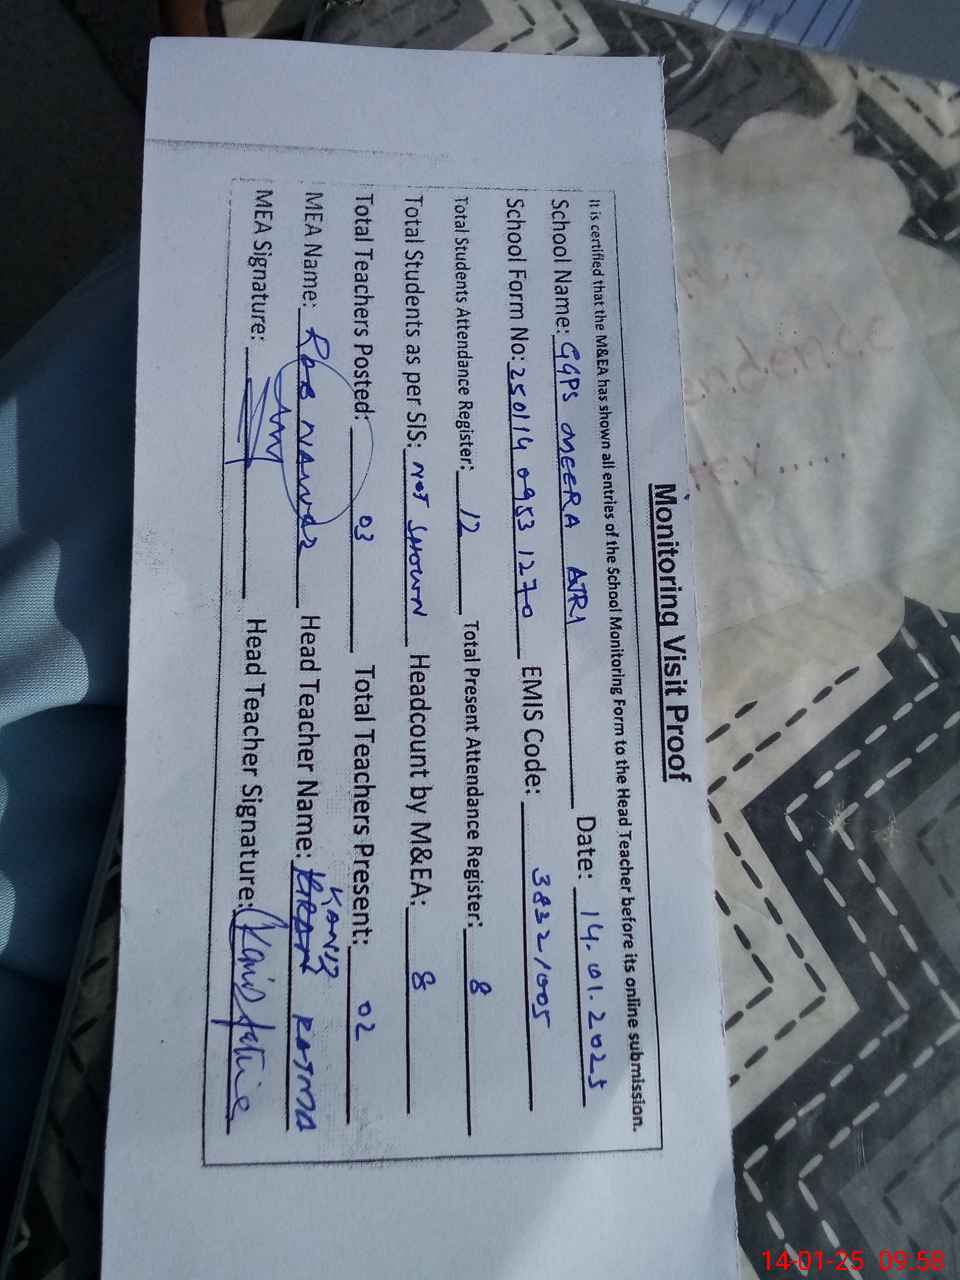 Monitoring Visit Proof
It is certified that the M&EA has shown all entries of the School Monitoring Form to the Head Teacher before its online submission.
School Name: GGPS MEERA ATRI Date: 14.01.2025
School Form No: 250114 0953 1270 EMIS Code: 38321005
Total Students Attendance Register: 12 Total Present Attendance Register: 8
Total Students as per SIS: NOT SHOWN Headcount by M&EA: 8
Total Teachers Posted: 03 Total Teachers Present: 02
MEA Name: RAB NAWAZ Head Teacher Name: KANIZ
MEA Signature: Head Teacher Signature:
14-01-25 09.58